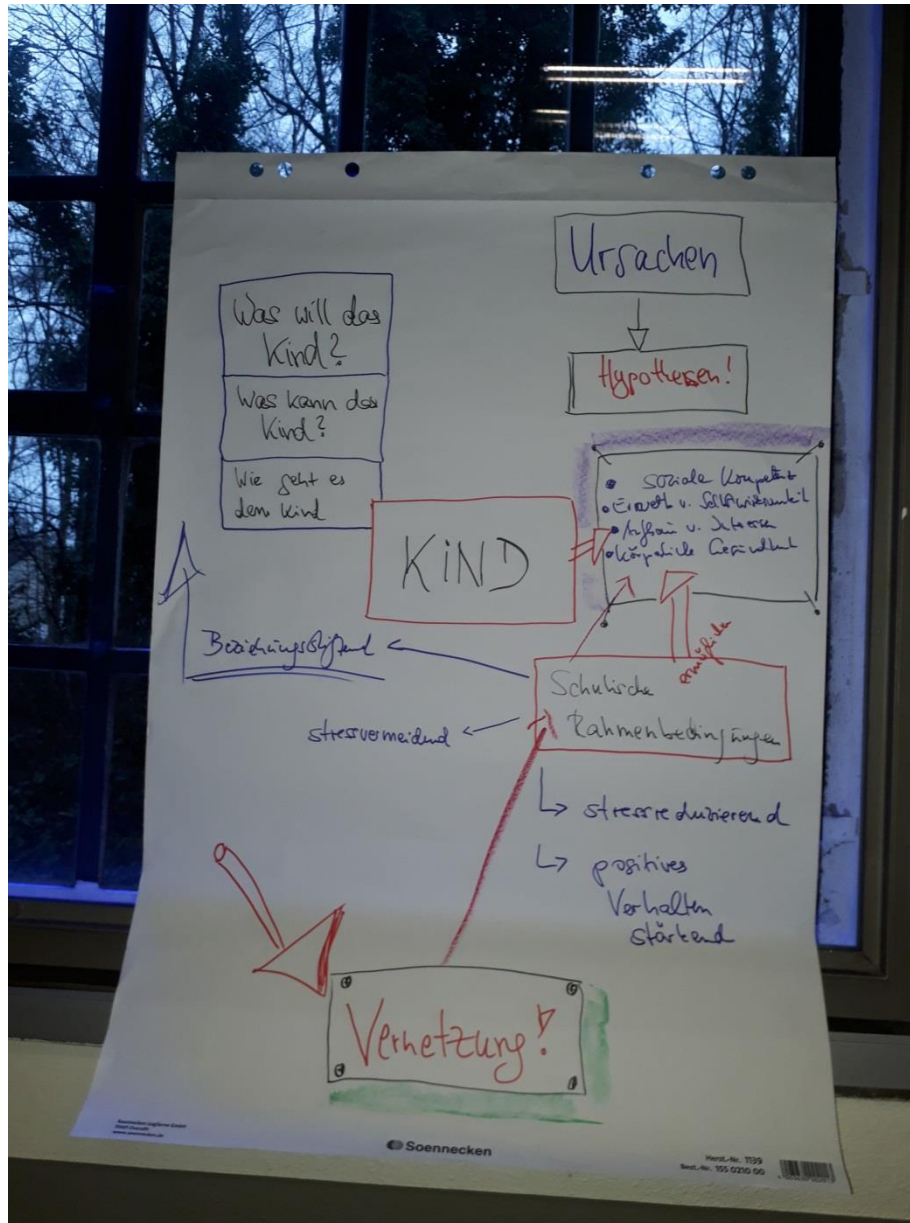 Ursachen
Hypothesen!
Was will das
Kind?
Was kann das
Kind?
Wie geht es
dem Kind
KiND
• soziale Kompetenz
• Erwerb v. Selbstwirksamkeit
• Aufbau v. Interessen
• körperliche Gesundheit
ermöglichen
Beziehungsstiftend
Schulische
Rahmenbedingungen
stressvermeidend
stressreduzierend
positives
Verhalten
stärkend
Vernetzung!
www.soennecken.de
Soennecken
Herst.-Nr. 1139
Best.-Nr. 155 0210 00